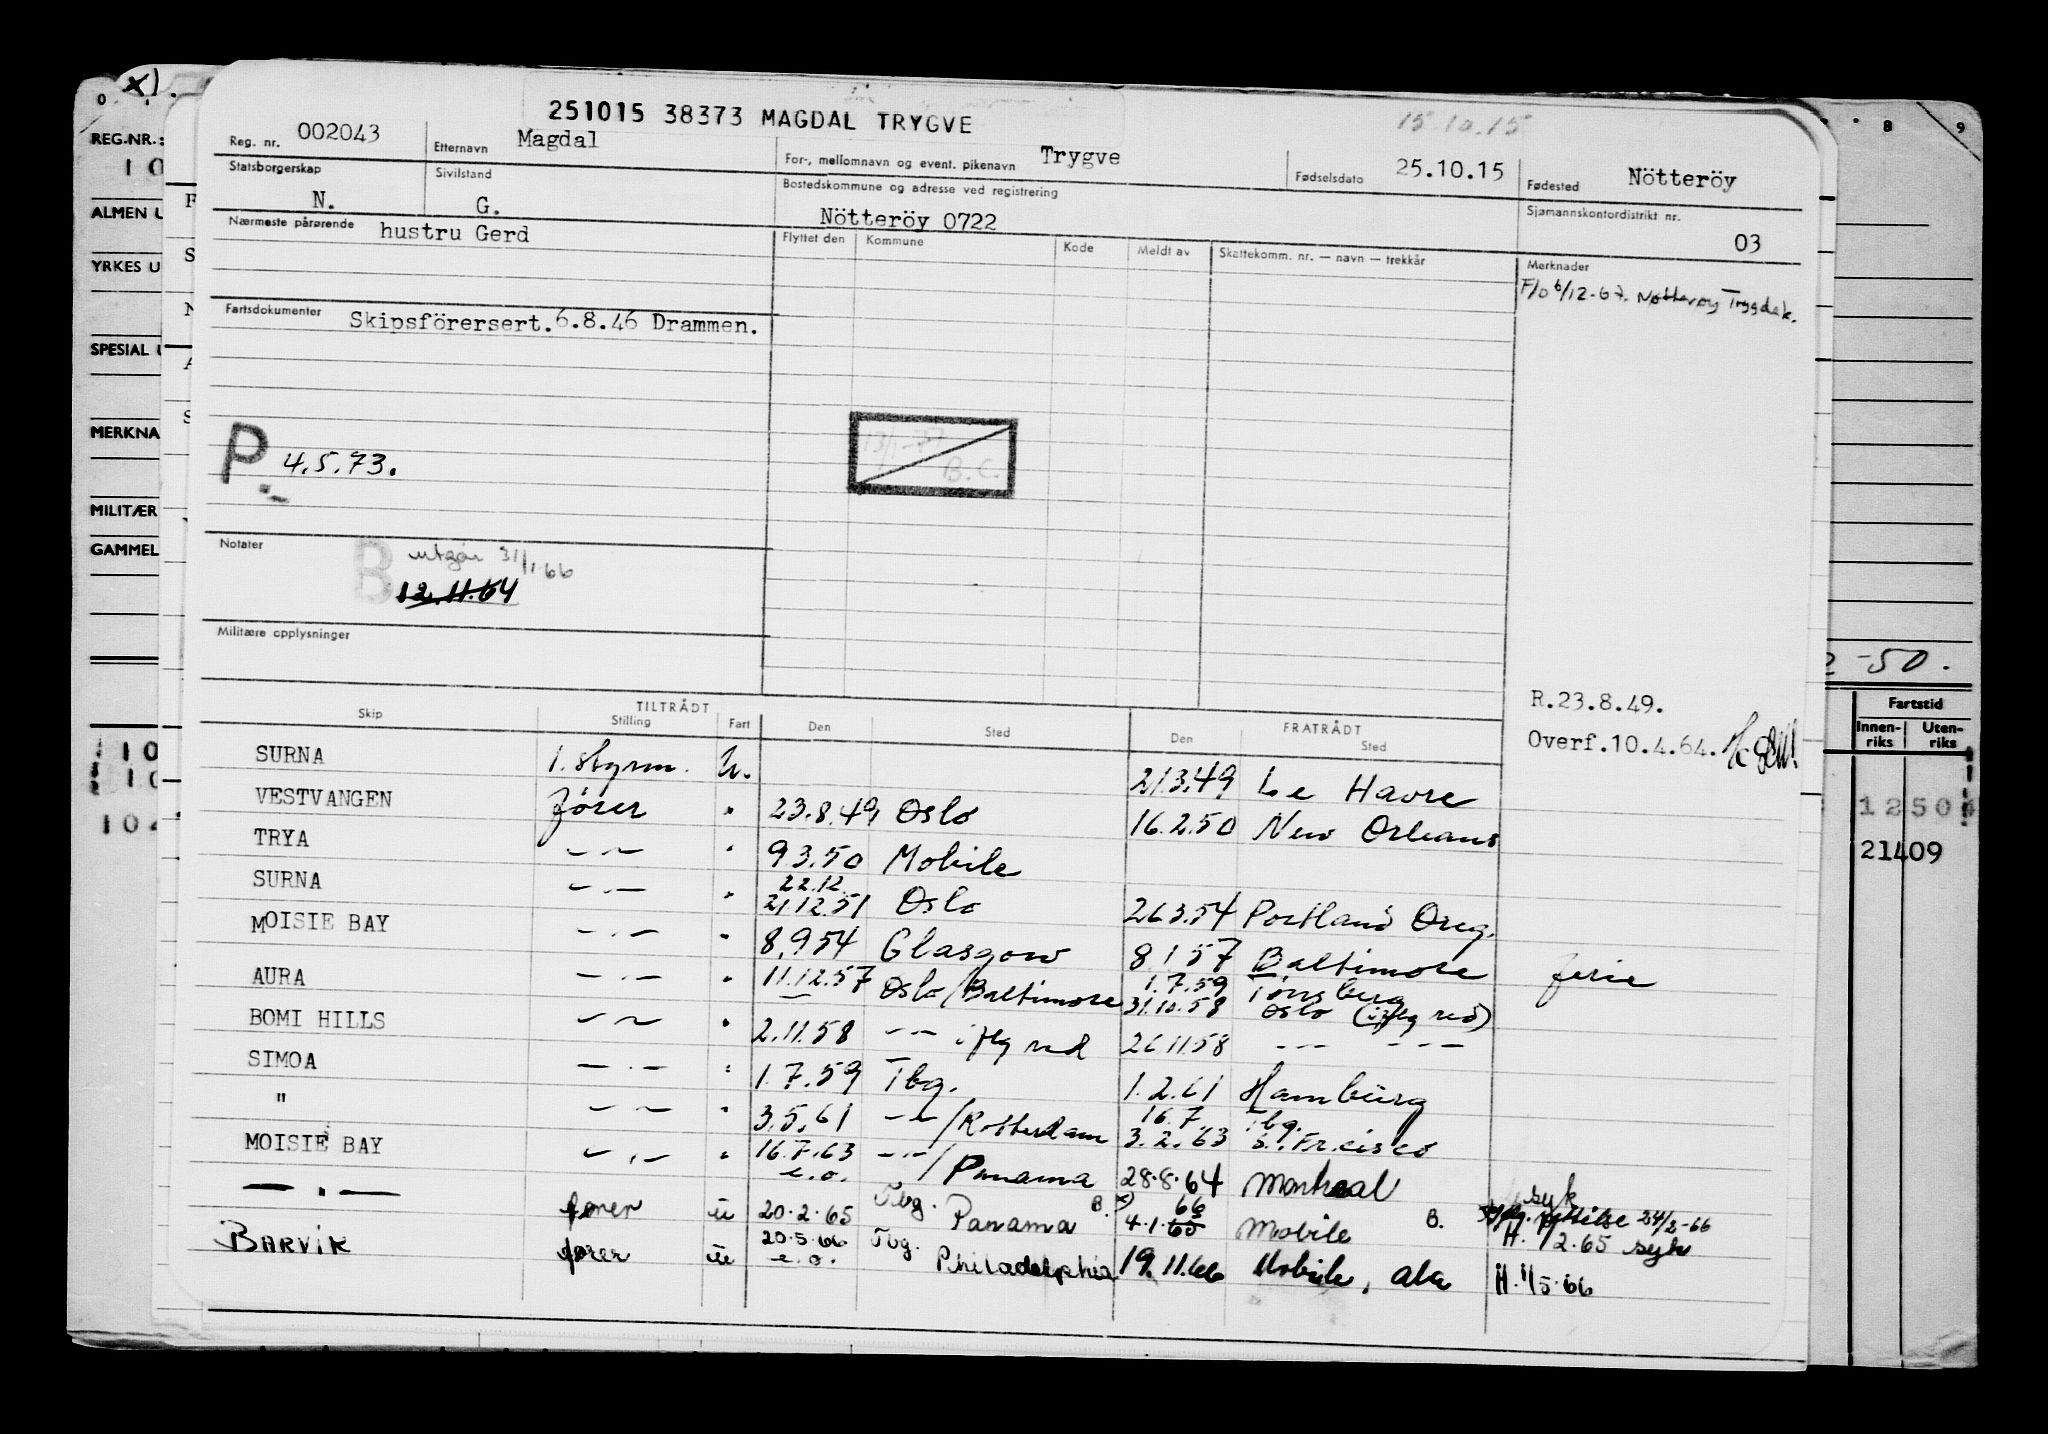 x).
0 8 9
251015 38373 MAGDAL TRYGVE
15.10.15
REG.NR.:
10
Reg. nr. 002043 Etternavn Magdal For-, mellomnavn og event. pikenavn Trygve Fødselsdato 25.10.15 Fødested Nötteröy
Statsborgerskap N. Sivilstand G. Bostedskommune og adresse ved registrering Nötteröy 0722 Sjømannskontordistrikt nr. 03
ALMEN U
Nærmeste pårørende hustru Gerd Flyttet den Kommune Kode Meldt av Skattekomm. nr. — navn — trekkår Merknader
YRKES U
F/o 6/12-67. Nøtterøy Trygdek.
Fartsdokumenter Skipsförersert.6.8.46 Drammen.
SPESIAL U
MERKNA
P 4.5.73.
B.C.
MILITÆR
GAMMEL
Notater B utgår 31/1.66
12.11.64
Militære opplysninger
-50.
R.23.8.49.
Overf.10.4.64.
Fartstid
Innen-riks Uten-riks
1250
21409
10
10
102
TILTRÅDT FRATRÅDT
Skip Stilling Fart Den Sted Den Sted
SURNA 1. styrm. U. 21.3.49 Le Havre
VESTVANGEN fører " 23.8.49 Oslo 16.2.50 New Orleans
TRYA —"— " 9.3.50 Mobile
SURNA —"— " 22.12. 21.12.51 Oslo 26.3.54 Portland Oreg.
MOISIE BAY —"— " 8.9.54 Glasgow 8.1.57 Baltimore ferie
AURA —"— " 11.12.57 Oslo/Baltimore 1.7.59 Tönsberg 31.10.58 Oslo (iflg red)
BOMI HILLS —"— " 2.11.58 —"— iflg red 26.11.58 —"— —"—
SIMOA —"— " 1.7.59 Tbg. 1.2.61 Hamburg
" —"— " 3.5.61 —"—/Rotterdam 16.7 Tbg. 3.2.63 S. Fr.cisco
MOISIE BAY —"— " 16.7.63 e.o. —"—/Panama 28.8.64 Montreal syk
—"— fører u 20.2.65 Tbg. Panama B. x) 4.1.65 66 Mobile B. 24/2-66
H. 1/2.65 syk
BARVIK fører u 20.5.66 e.o. Tbg. Philadelphia 19.11.66 Mobile, Ala H. 1/5.66